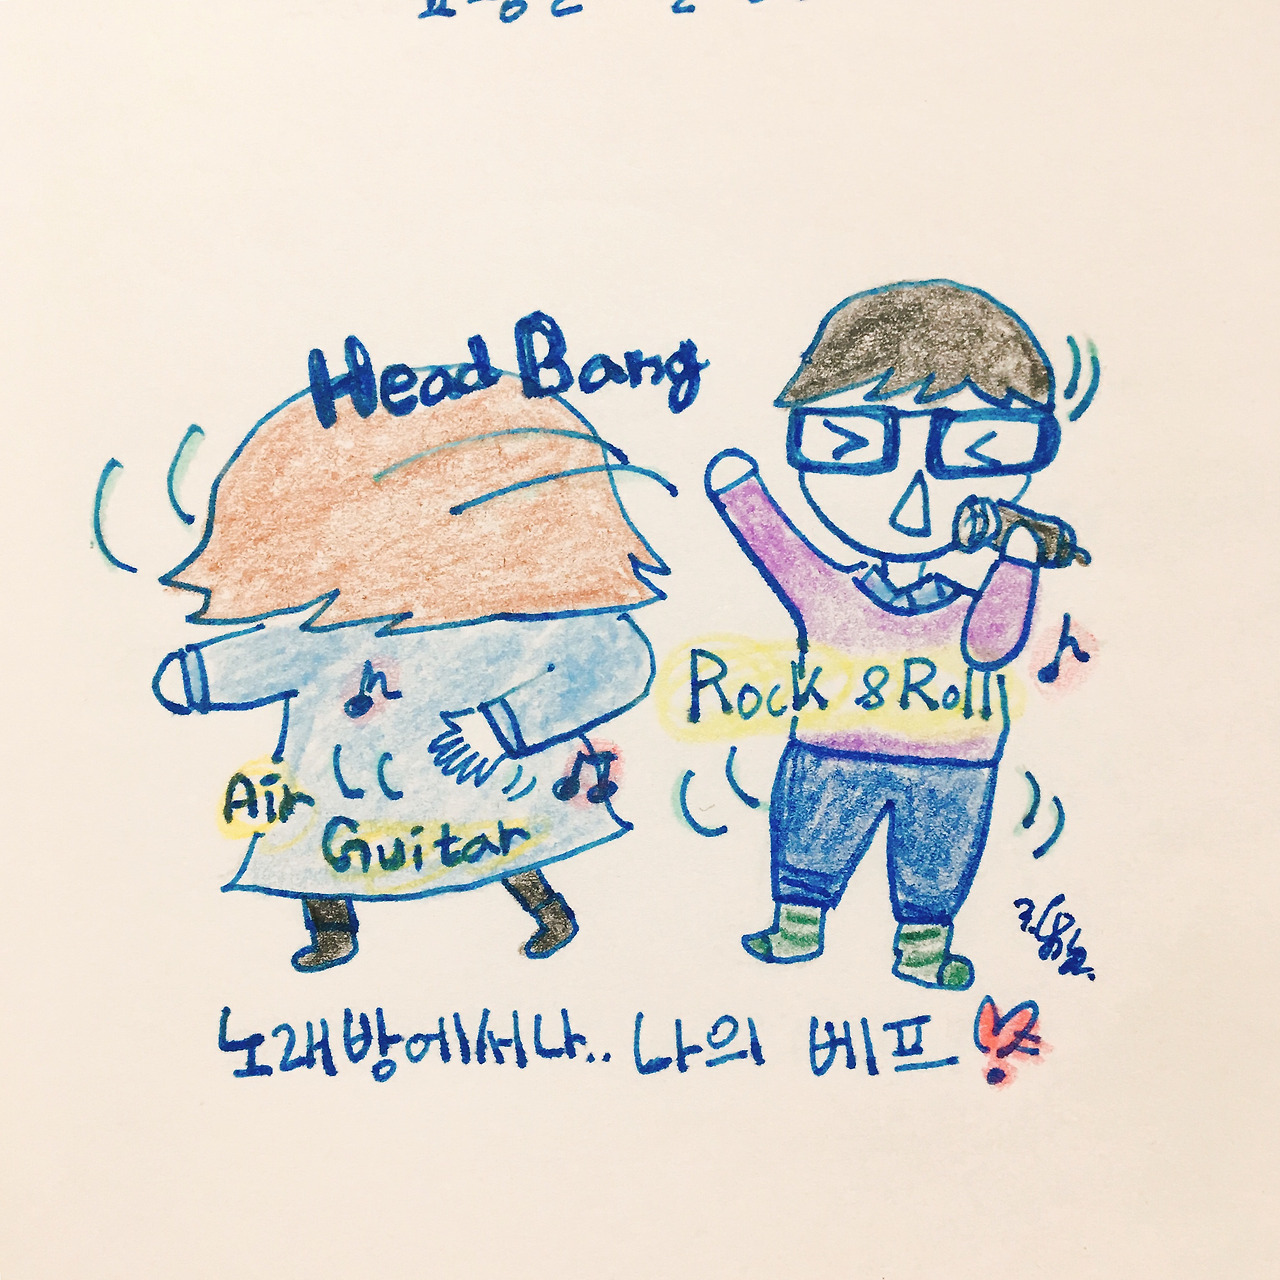 Head Bang
Rock & Roll
Air
Guitar
노래방에서나.. 나의 베프